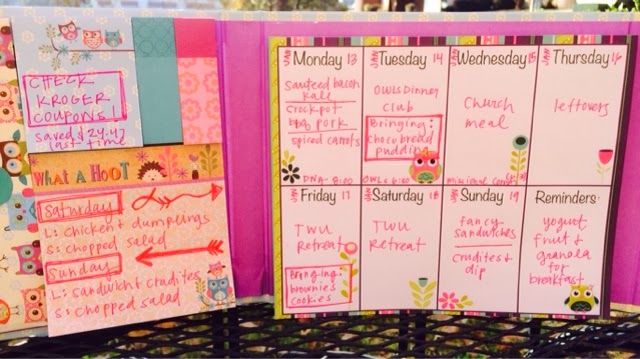 CHECK
KROGER
COUPONS!
saved $24.47
last time.
WHAT A HOOT
Saturday
L: chicken & dumplings
S: chopped salad
Sunday
L: sandwich & crudites
S: chopped salad
JAN Monday 13
sauteed bacon
kale
crockpot
bbq pork
spiced carrots
DNA 8:00
JAN Tuesday 14
OWLS Dinner
Club
Bringing:
choco bread
pudding
OWLS 6:00
JAN Wednesday 15
Church
meal
missional comm
JAN Thursday 16
leftovers
JAN Friday 17
TWU
Retreat
Bringing:
brownies
cookies
JAN Saturday 18
TWU
Retreat
JAN Sunday 19
fancy
sandwiches
crudites &
dip
Reminders:
yogurt
fruit &
granola
for
breakfast